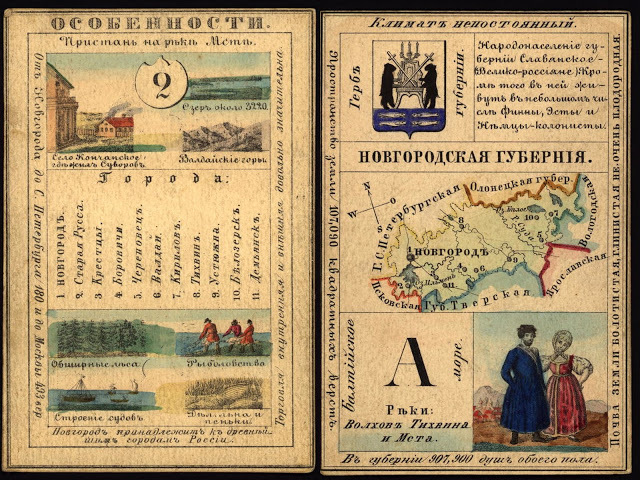 ОСОБЕННОСТИ.
Пристань на рѣкѣ Мстѣ.
2
Озеръ около 3240.
Село Кончанское
гдѣ жилъ Суворовъ.
Валдайскіе горы.
Города:
1 НОВГОРОДЪ.
2. Старая Русса.
3. Крестцы.
4. Боровичи.
5. Череповецъ.
6. Валдай.
7. Кириловъ.
8. Тихвинъ.
9. Устюжна.
10. Бѣлозерскъ.
11. Демьянскъ.
Обширные лѣса
Рыболовства
Строеніе судовъ.
Дѣл. льна и
пеньки
Новгородъ принадлежитъ къ древнѣй
шимъ городамъ Россіи.
Отъ Новгорода до С. Петербурга 160 и до Москвы 433 вер
Торговля внутренняя и внѣшняя довольно значительна
Климатъ непостоянный.
Гербъ
губерніи.
Народонаселеніе гу-
берніи Славянское
(Велико-россіяне) Кро-
мѣ того въ ней жи-
вутъ въ небольшомъ чис-
лѣ финны, Эсты и
Нѣмцы-колонисты.
НОВГОРОДСКАЯ ГУБЕРНІЯ.
W
N
S
O
Олонецкая губер.
С. Петербургская
Г.
Вологодская
Ярославская
Тверская
Псковская
Губ.
НОВГОРОДЪ
Балтійское
море.
А
Рѣки:
Волховъ Тихвина
и Мста.
Въ губерніи 907,900 душъ обоего пола.
Пространство земли 107,090 квадратныхъ верстъ
Почва земли болотистая, глинистая не-очень плодородная.